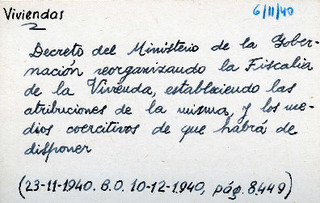 Viviendas
6/11/40
Decreto del Ministerio de la Gober-
nación reorganizando la Fiscalia
de la Vivienda, estableciendo las
atribuciones de la misma, y los me-
dios coercitivos de que habrá de
disponer
(23-11-1940. B.O. 10-12-1940, pág. 8449)